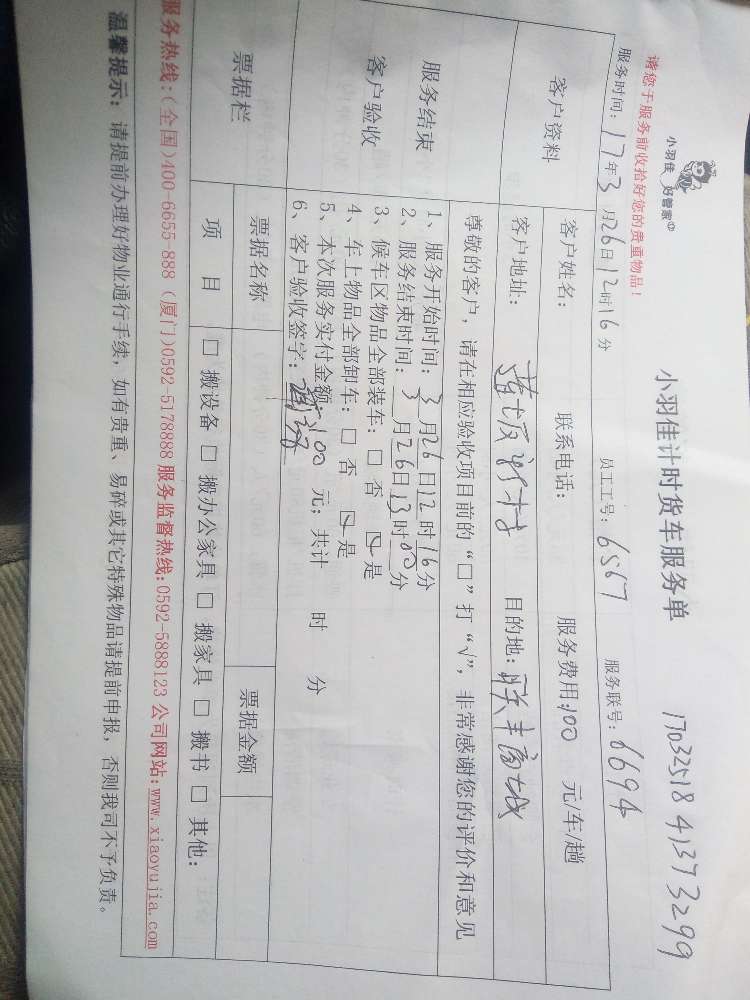 小羽佳 好管家
小羽佳计时货车服务单
17032518 41373299
请您于服务前收拾好您的贵重物品！
服务时间：17年3月26日12时16分 员工工号：6567 服务联号：6694
客户资料
客户姓名： 联系电话： 服务费用：100 元/车/趟
客户地址： 目的地：联丰商城
服务结束
客户验收
尊敬的客户，请在相应验收项目前的“□”打“√”，非常感谢您的评价和意见
1、服务开始时间：3月26日12时16分
2、服务结束时间：3月26日13时00分
3、候车区物品全部装车：□ 否 ☑ 是
4、车上物品全部卸车：□ 否 ☑ 是
5、本次服务实付金额：100 元；共计 时 分
6、客户验收签字：
票据栏
票据名称 票据金额
项 目 □ 搬设备 □ 搬办公家具 □ 搬家具 □ 搬书 □ 其他：
服务热线：(全国)400-6655-888 (厦门)0592-5178888 服务监督热线：0592-5888123 公司网站：www.xiaoyujia.com
温馨提示：请提前办理好物业通行手续，如有贵重、易碎或其它特殊物品请提前申报，否则我司不予负责。